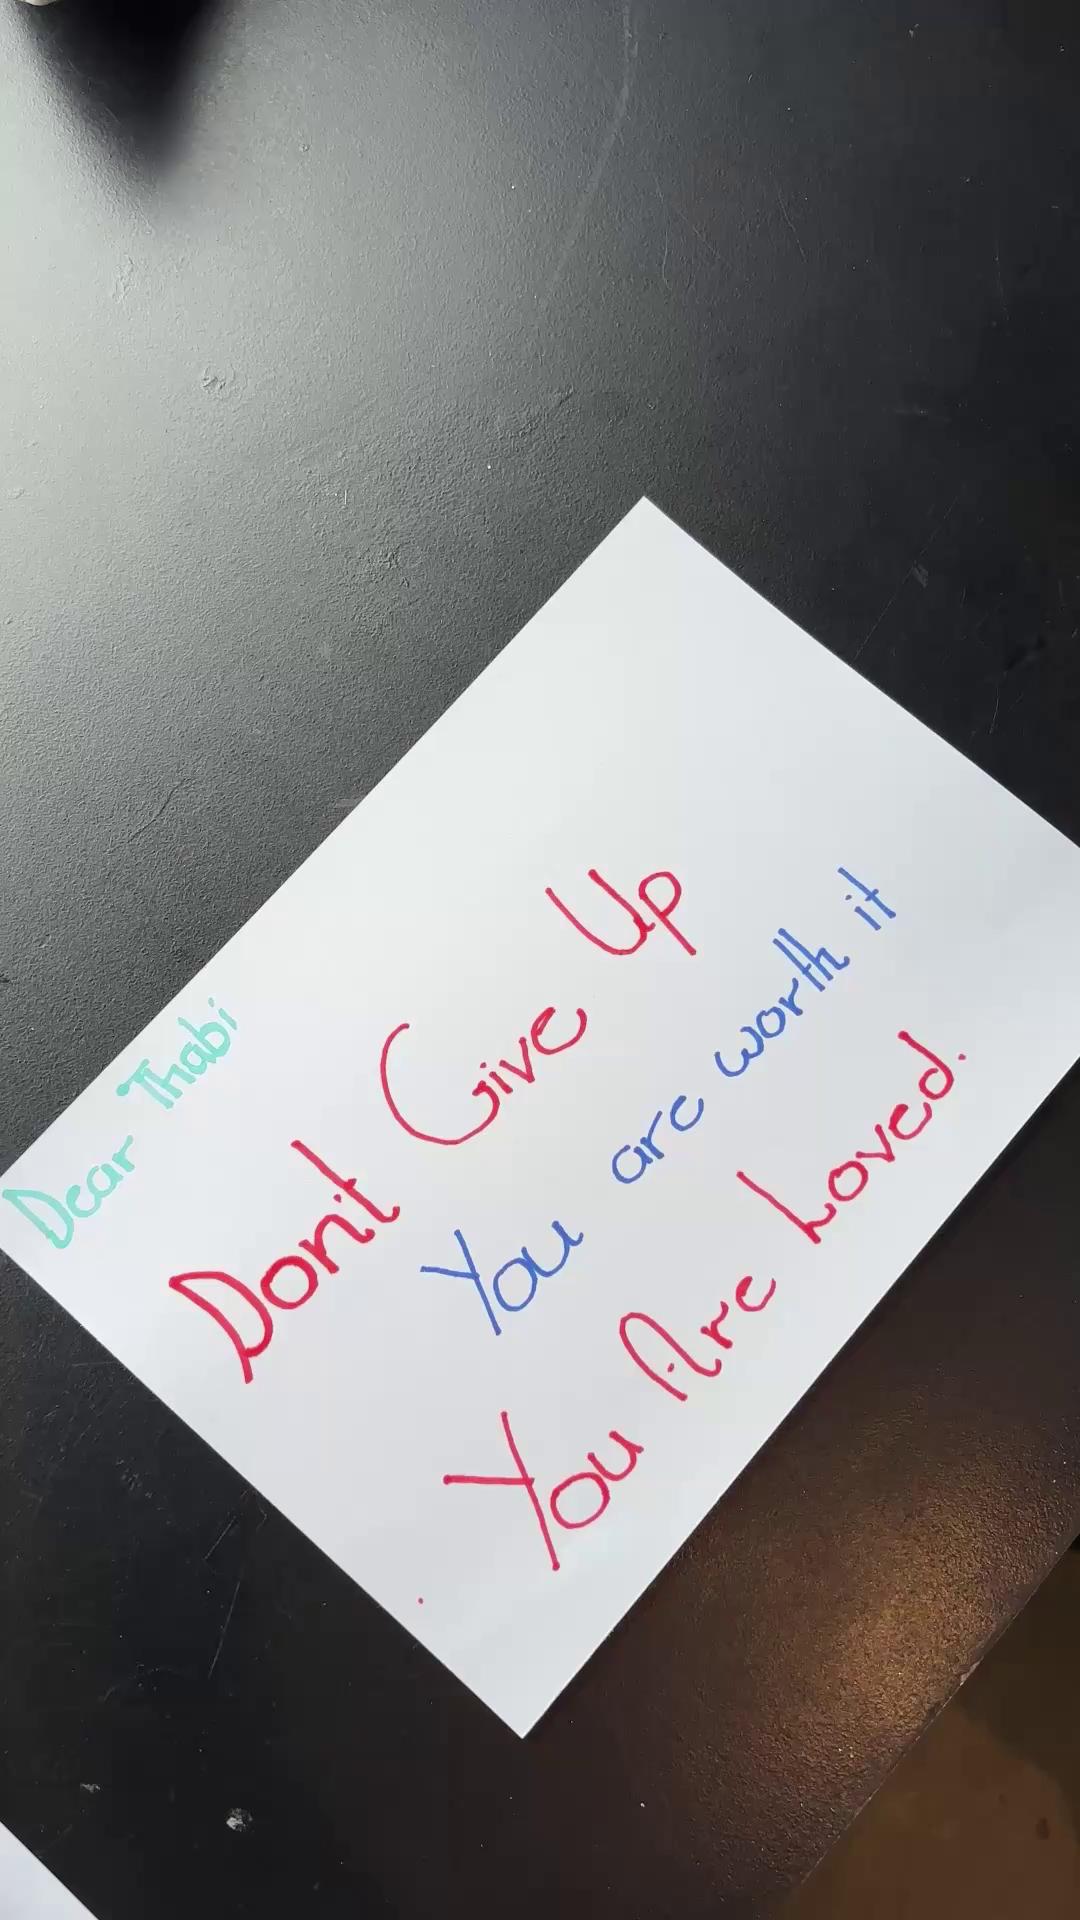 Dear Thabi
Don't Give Up
You are worth it
You Are Loved.